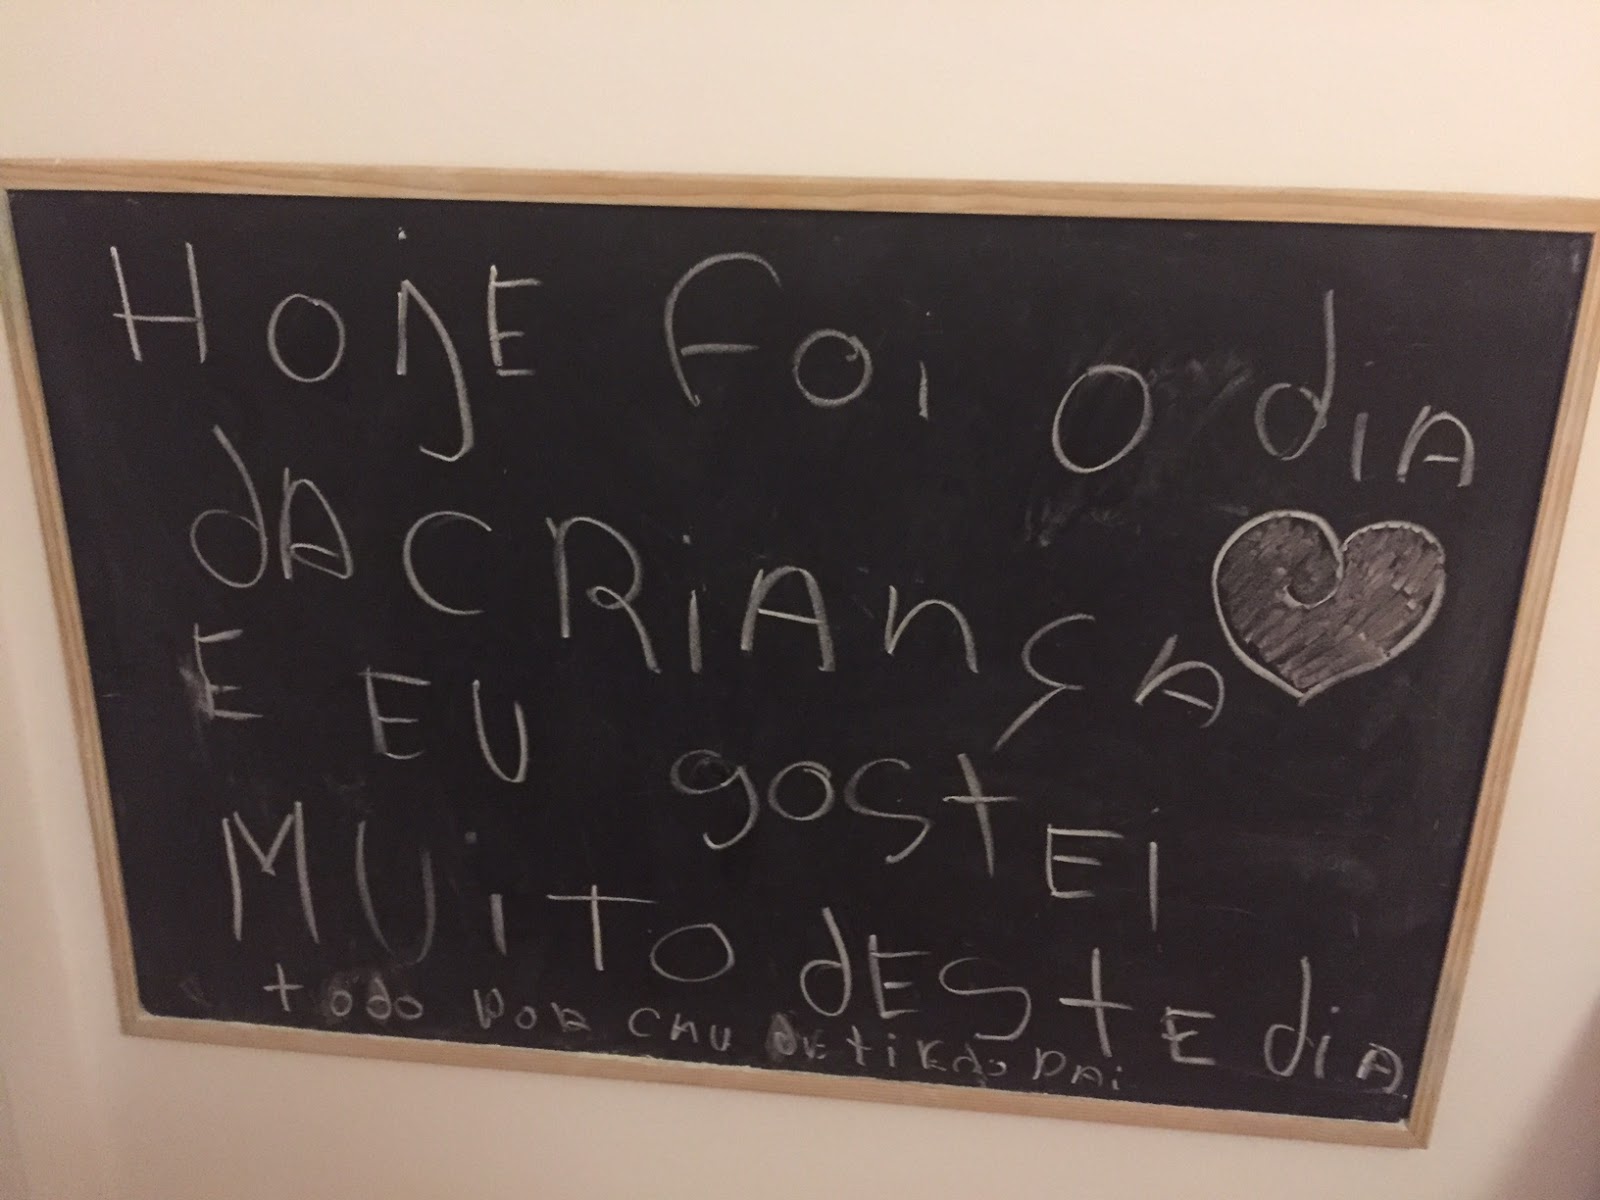 HOjE FOi O diA
dA CRiAnçA
E EU gostEi
MUiTO dESTE diA
todo por